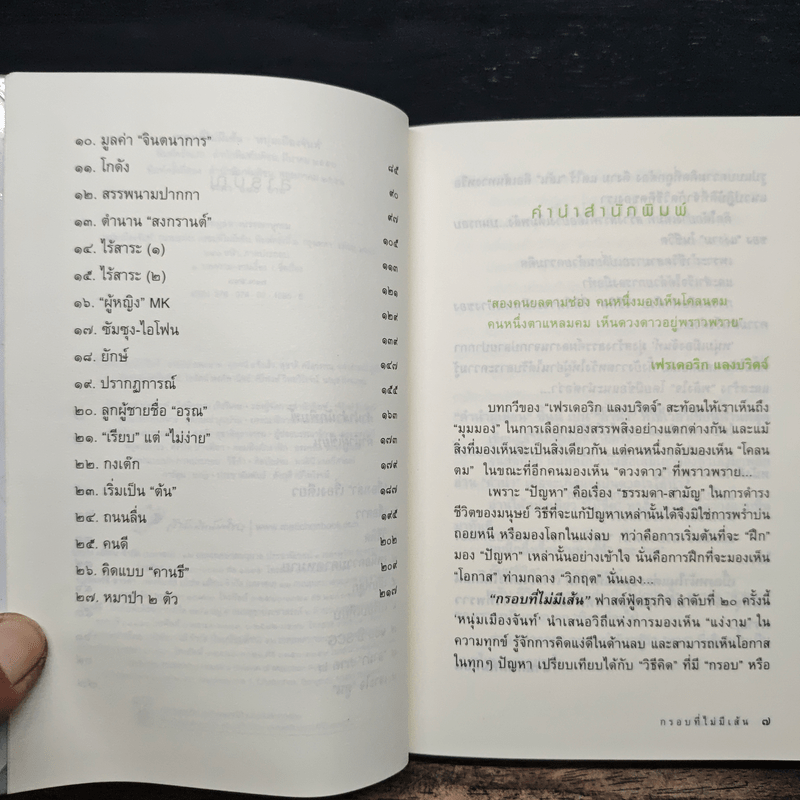 ๑๐. มูลค่า “จินตนาการ” ๘๕
๑๑. โกดัง ๙๐
๑๒. สรรพนามปากกา ๙๗
๑๓. ตำนาน “สงกรานต์” ๑๐๕
๑๔. ไร้สาระ (๑) ๑๑๓
๑๕. ไร้สาระ (๒) ๑๒๑
๑๖. “ผู้หญิง” MK ๑๒๙
๑๗. ซัมซุง-ไอโฟน ๑๓๙
๑๘. ยักษ์ ๑๔๗
๑๙. ปรากฏการณ์ ๑๕๕
๒๐. ลูกผู้ชายชื่อ “อรุณ” ๑๖๓
๒๑. “เรียบ” แต่ “ไม่ง่าย” ๑๗๓
๒๒. กงเต๊ก ๑๗๙
๒๓. เริ่มเป็น “ต้น” ๑๘๗
๒๔. ถนนลื่น ๑๙๕
๒๕. คนดี ๒๐๒
๒๖. คิดแบบ “คานธี” ๒๐๙
๒๗. หมาป่า ๒ ตัว ๒๑๗
คำนำสำนักพิมพ์
“สองคนยลตามช่อง คนหนึ่งมองเห็นโคลนตม
คนหนึ่งตาแหลมคม เห็นดวงดาวอยู่พราวพราย”
เฟรเดอริก แลงบริดจ์
บทกวีของ “เฟรเดอริก แลงบริดจ์” สะท้อนให้เราเห็นถึง
“มุมมอง” ในการเลือกมองสรรพสิ่งอย่างแตกต่างกัน และแม้
สิ่งที่มองเห็นจะเป็นสิ่งเดียวกัน แต่คนหนึ่งกลับมองเห็น “โคลน
ตม” ในขณะที่อีกคนมองเห็น “ดวงดาว” ที่พราวพราย...
เพราะ “ปัญหา” คือเรื่อง “ธรรมดา-สามัญ” ในการดำรง
ชีวิตของมนุษย์ วิธีที่จะแก้ปัญหาเหล่านั้นได้จึงมิใช่การพร่ำบ่น
ถอยหนี หรือมองโลกในแง่ลบ ทว่าคือการเริ่มต้นที่จะ “ฝึก”
มอง “ปัญหา” เหล่านั้นอย่างเข้าใจ นั่นคือการฝึกที่จะมองเห็น
“โอกาส” ท่ามกลาง “วิกฤต” นั่นเอง...
“กรอบที่ไม่มีเส้น” ฟาสต์ฟู้ดธุรกิจ ลำดับที่ ๒๐ ครั้งนี้
‘หนุ่มเมืองจันท์’ นำเสนอวิถีแห่งการมองเห็น “แง่งาม” ใน
ความทุกข์ รู้จักการคิดแง่ดีในด้านลบ และสามารถเห็นโอกาส
ในทุกๆ ปัญหา เปรียบเทียบได้กับ “วิธีคิด” ที่มี “กรอบ” หรือ
กรอบที่ไม่มีเส้น ๗